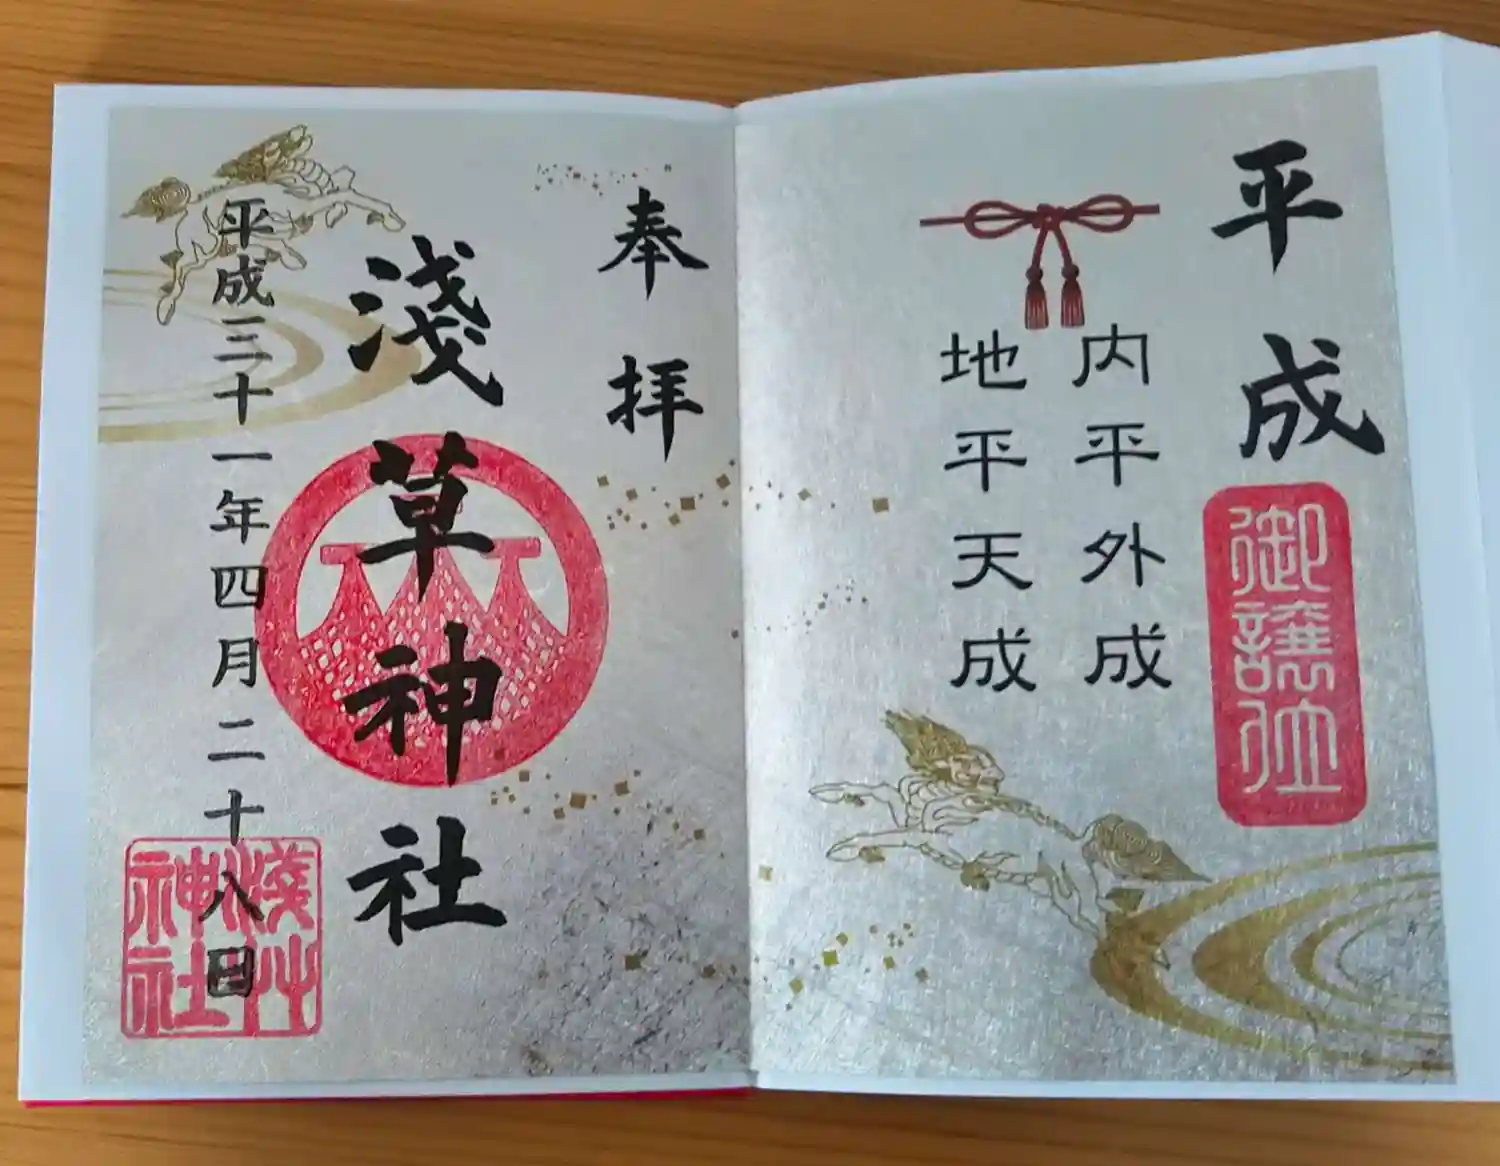 平成
御譲位
内平外成
地平天成
奉拝
淺草神社
平成三十一年四月二十八日
淺草神社